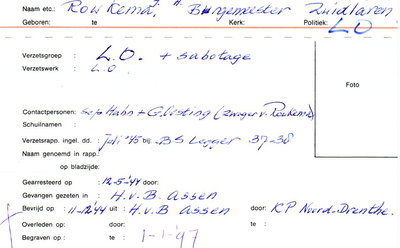 Naam etc.: Rowkema, J. H. Burgemeester Zuidlaren
Geboren: te : Kerk: Politiek:
LO
Verzetsgroep : L.O. + sabotage
Verzetswerk : L.O.
Foto
Contactpersonen: Hahn + G. Listing (zwager v. Roukema)
Schuilnamen :
Verzetsrapp. ingel. dd. : Juli '45 bij: BS Legger 37-38
Naam genoemd in rapp.:
op bladzijde:
Gearresteerd op : 12-5-'44 door:
Gevangen gezeten in : H.v.B. Assen
Bevrijd op : 11-12-'44 uit : H.v.B Assen door: KP Noord-Drenthe.
Overleden op: door: te :
Begraven op : te : 1-1-'97